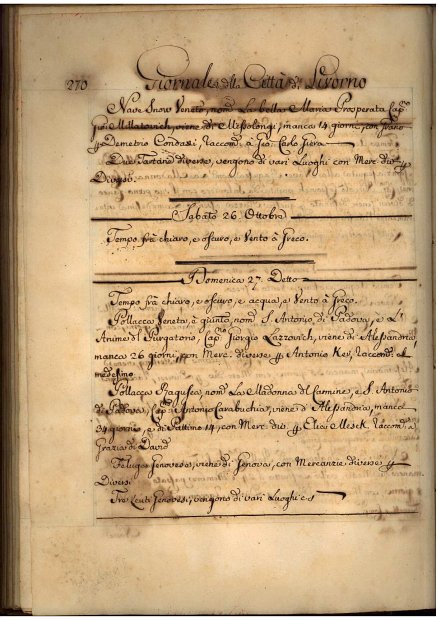 270 Giornale della Città di Livorno
Nave Snow Veneto, nom.ª La bella Maria Prosperata Cap.º
Gio: Millatovich, viene di Messolongi, manca 14 giorni, con grano
p Demetrio Condassi, Raccom. a Gio: Carlo
Due Tartane diverse, vengono di vari Luoghi con Merc. div. p
Diversi.
Sabato 26. Ottobre
Tempo frà chiaro, e oscuro, e Vento à Greco.
Domenica 27. Detto
Tempo frà chiaro, e oscuro, e acqua, e Vento à Greco.
Pollacca Veneta, è giunto, nom.ª S. Antonio di Padova, e L'
Anime del Purgatorio, Cap.º Giorgio Lazzovich, viene di Alessandria
manca 26 giorni, con Merc. diverse, p Antonio Ker, Raccom. al
medesimo
Pollacca Ragusea, nom.ª La Madonna del Carmine, e S. Antonio
di Padova, Cap.º Antonio Carabuchia, viene d'Alessandria, manca
34 giorni, e di Pattino 14, con Merc. div. p Elia Raccom. a
Grazia di David
Feluga Genovese, viene di Genova, con Mercanzie diverse p
Diversi
Tre Leuti Genovesi, vengono di vari Luoghi